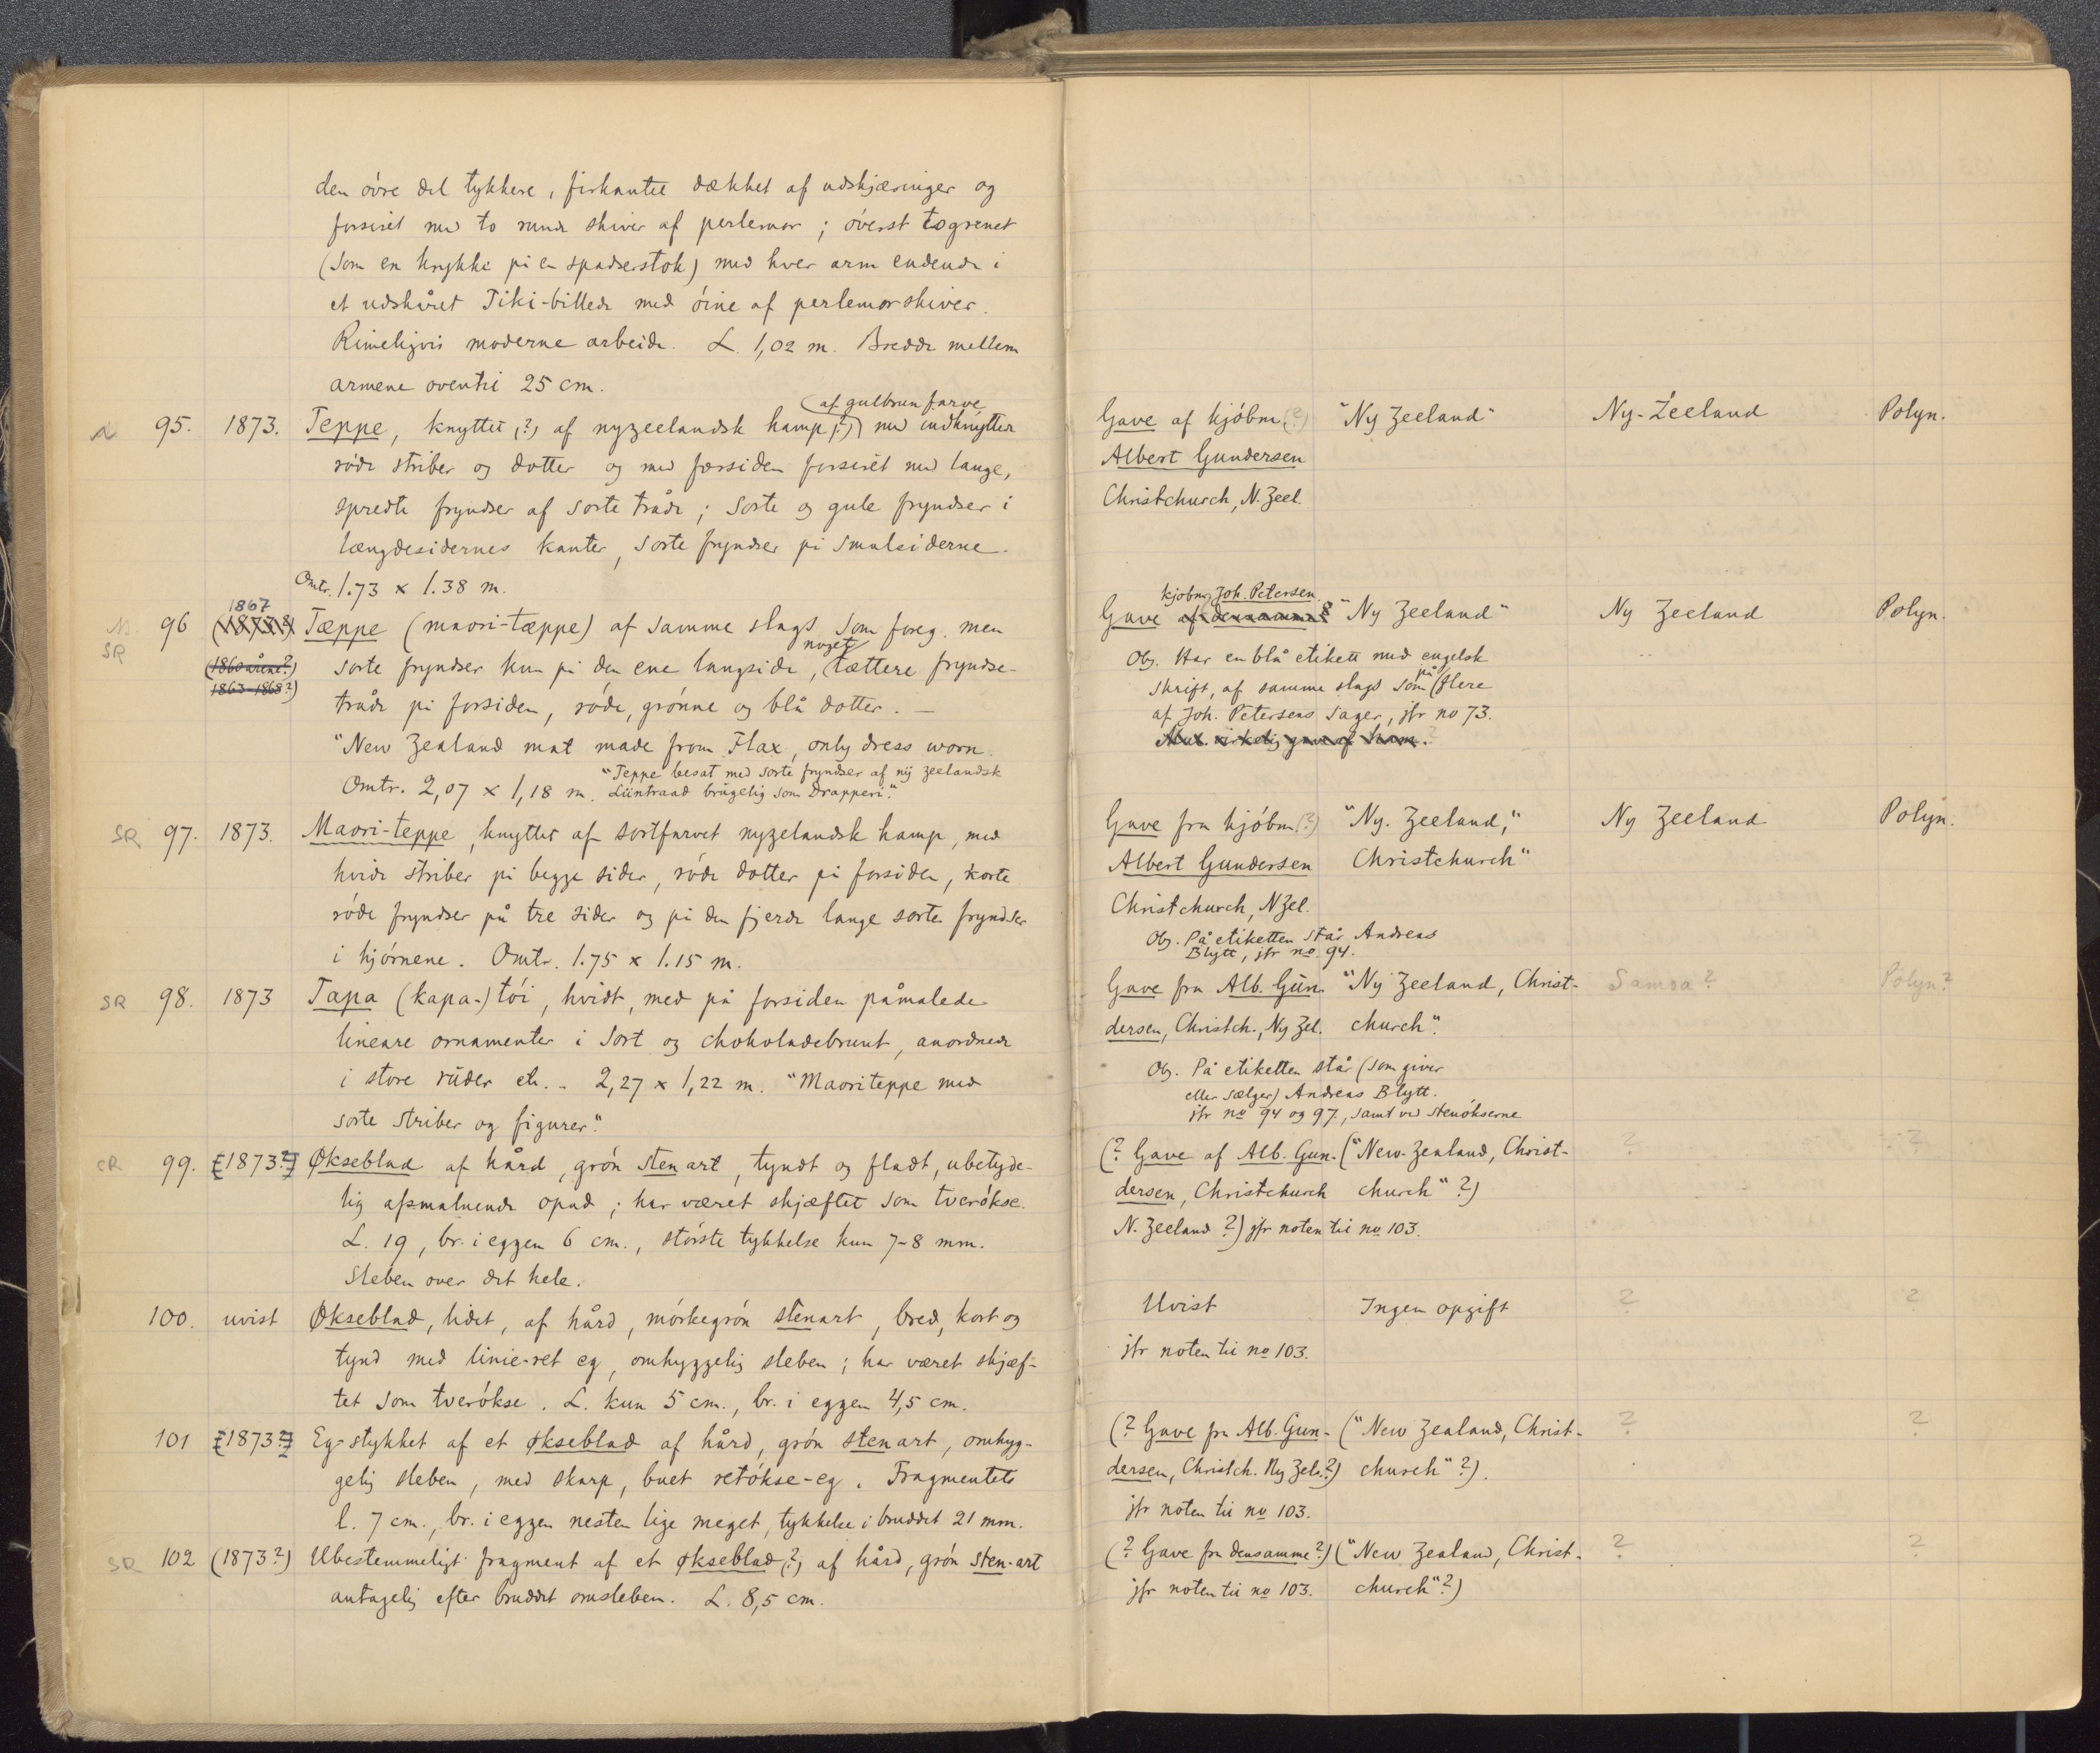 den óvre del tykkere, firkantet dækket af udskjæringer og
forsiret med to runde skiver af perlemor; óverst togrenet
(som en krykke på en spadserstok) med hver arm endende i
et udskåret Tiki-billede med óine af perlemorskiver.
Rimeligvis moderne arbeide. L. 1,02 m. Bredde mellem
armene oventil 25 cm.
95. 1873. Teppe, knyttet (?) af nyzeelandsk hamp (?) af gulbrun farve med indknyttede
róde striber og dotter og med forsiden forsiret med lange,
spredte fryndser af sorte tråde; sorte og gule fryndser i
længdesidernes kanter, sorte fryndser på smalsiderne.
Omtr. 1.73 x 1.38 m.
SR 96 1867 (1873?) Tæppe (maori-tæppe) af samme slags som foreg. men
(1860 årene?) sorte fryndser kun på den ene langside, noget tættere fryndse-
1863-1868?) tråde på forsiden, róde, grónne og blå dotter. –
"New Zealand mat made from Flax, only dress worn.
"Teppe besat med sorte fryndser af nÿ zeelandsk
Omtr. 2,07 x 1,18 m. Liintraad brügelig som Drapperi."
SR 97. 1873. Maori-teppe, knyttet af sortfarvet nyzelandsk hamp, med
hvide striber på begge sider, róde dotter på forsiden, korte
róde fryndser på tre sider og på den fjerde lange sorte fryndser
i hjórnene. Omtr. 1.75 x 1.15 m.
SR 98. 1873 Tapa (kapa-) tói, hvidt, med på forsiden påmalede
lineare ornamenter i sort og chokoladebrunt, anordnede
i store rüder etc. - 2,27 x 1,22 m. "Maoriteppe med
sorte striber og figurer."
SR 99. [1873?] Økseblad af hård, grón stenart, tyndt og fladt, ubetyde-
lig afsmalnende opad; har været skjæftet som tverókse.
L. 19, br. i eggen 6 cm., stórste tykkelse kun 7-8 mm.
Sleben over det hele.
100. uvist Økseblad, lidet, af hård, mórkegrón stenart, bred, kort og
tynd med linie-ret eg, omhyggelig sleben; har været skjæf-
tet som tverókse. L. kun 5 cm., br. i eggen 4,5 cm.
101 [1873?] Eg-stykket af et økseblad af hård, grón stenart, omhyg-
gelig sleben, med skarp, buet retókse-eg. Fragmentets
l. 7 cm., br. i eggen nesten lige meget, tykkelse i bruddet 21 mm.
SR 102 (1873?) Ubestemmeligt fragment af et økseblad (?) af hård, grón sten-art
antagelig efter bruddet omsleben. L. 8,5 cm.
Gave af kjóbm. (?) "Ny Zeeland" Ny-Zeeland Polyn.
Albert Gundersen
Christchurch, N. Zeel.
kjobm. Joh. Petersen
Gave af densamme? "Ny Zeeland" Ny Zeeland Polyn.
Obs. Har en blå etikett med engelsk
skrift, af samme slags som på flere
af Joh. Petersens sager, jfr no 73.
Mul. virkelig gave af ham.?
Gave fra kjóbm. (?) "Ny. Zeeland," Ny Zeeland Polyn.
Albert Gundersen Christchurch"
Christchurch, N Zel.
Obs. På etiketten står Andreas
Blytt, jfr no. 94.
Gave fra Alb. Gün- "Ny Zeeland, Christ- Samoa? Polyn?
dersen, Christch., Ny Zel. church".
Obs. På etiketten står (som giver
eller sælger) Andreas Blytt.
jfr no 94 og 97, samt ved stenókserne
(? Gave af Alb. Gun- ("New-Zealand, Christ- ? ?
dersen, Christchurch church" ?)
N. Zeeland ?) jfr noten til no 103.
Uvist Ingen opgift ? ?
jfr noten til no 103.
(? Gave fra Alb. Gun- ("New Zealand, Christ- ? ?
dersen, Christch. Ny Zel.?) church" ?).
jfr noten til no 103.
(? Gave fra densamme?) ("New Zealand, Christ- ? ?
jfr noten til no 103. church"?)